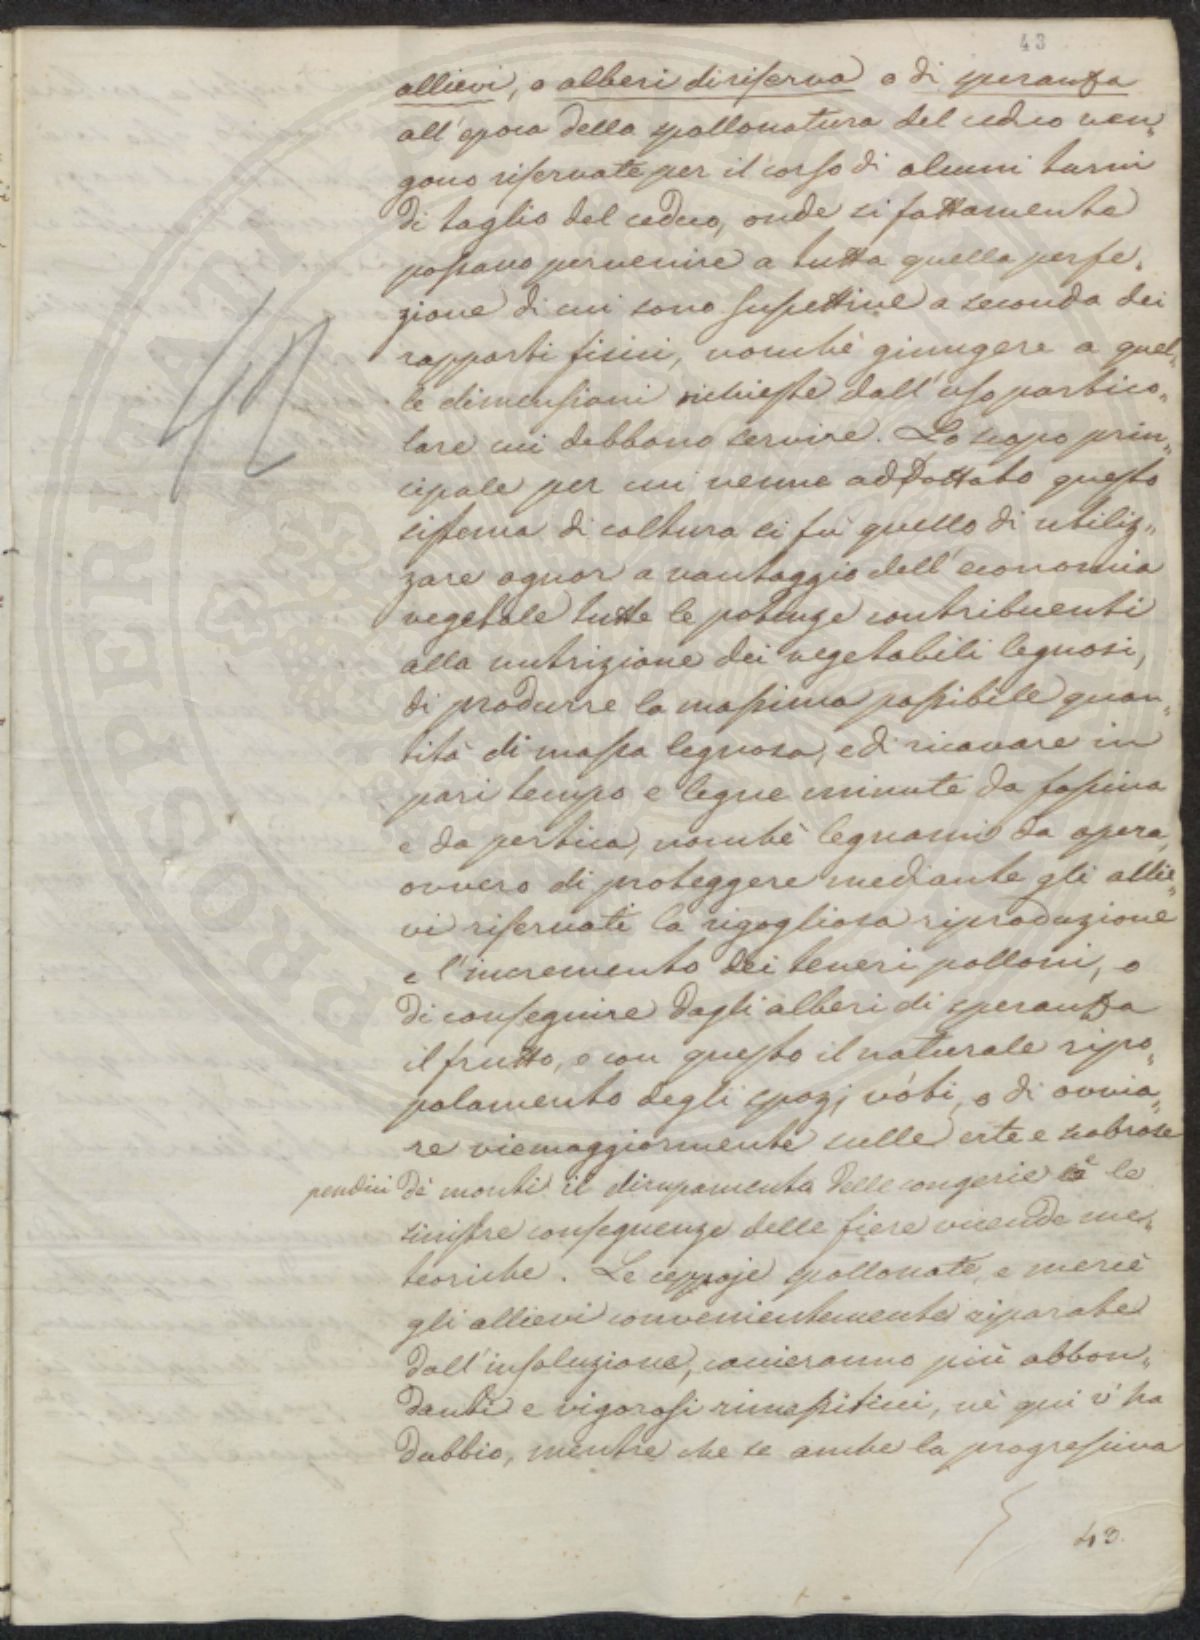 43
allievi, o alberi di riserva o di speranza
all'epoca della spollonatura del ceduo ven„
gono riservate per il corso di alcuni turni
di taglio del ceduo, onde sì fattamente
possano pervenire a tutta quella perfe„
zione di cui sono suscettive a seconda dei
rapporti fisici, nonchè giungere a quel„
le dimensioni richieste dall'uso partico„
lare cui debbono servire. Lo scopo prin„
cipale per cui venne addottato questo
sistema di coltura si fu quello di utiliz„
zare ognor a vantaggio dell'economia
vegetale tutte le potenze contribuenti
alla nutrizione dei vegetabili legnosi,
di produrre la massima possibile quan„
tità di massa legnosa, e di ricavare in
pari tempo e legne minute da fassina
e da pertica, nonchè legnami da opera,
ovvero di proteggere mediante gli allie„
vi riservati la rigogliosa riproduzione
e l'incremento dei teneri polloni, o
di conseguire dagli alberi di speranza
il frutto, e con questo il naturale ripo„
polamento degli spazj vòti, o di ovvia„
re viemaggiormente sulle erte e scabrose
pendici dè monti il dirupamento delle congerie e le
sinistre conseguenze delle fiere vicende me„
teoriche. Le ceppaje spollonate, e mercè
gli allievi convenientemente riparate
dall'insoluzione, cacieranno più abbon„
danti e vigorosi rimessiticci, nè qui v'ha
dubbio, mentre che se anche la progressiva
43.
42
PROSPERITATI